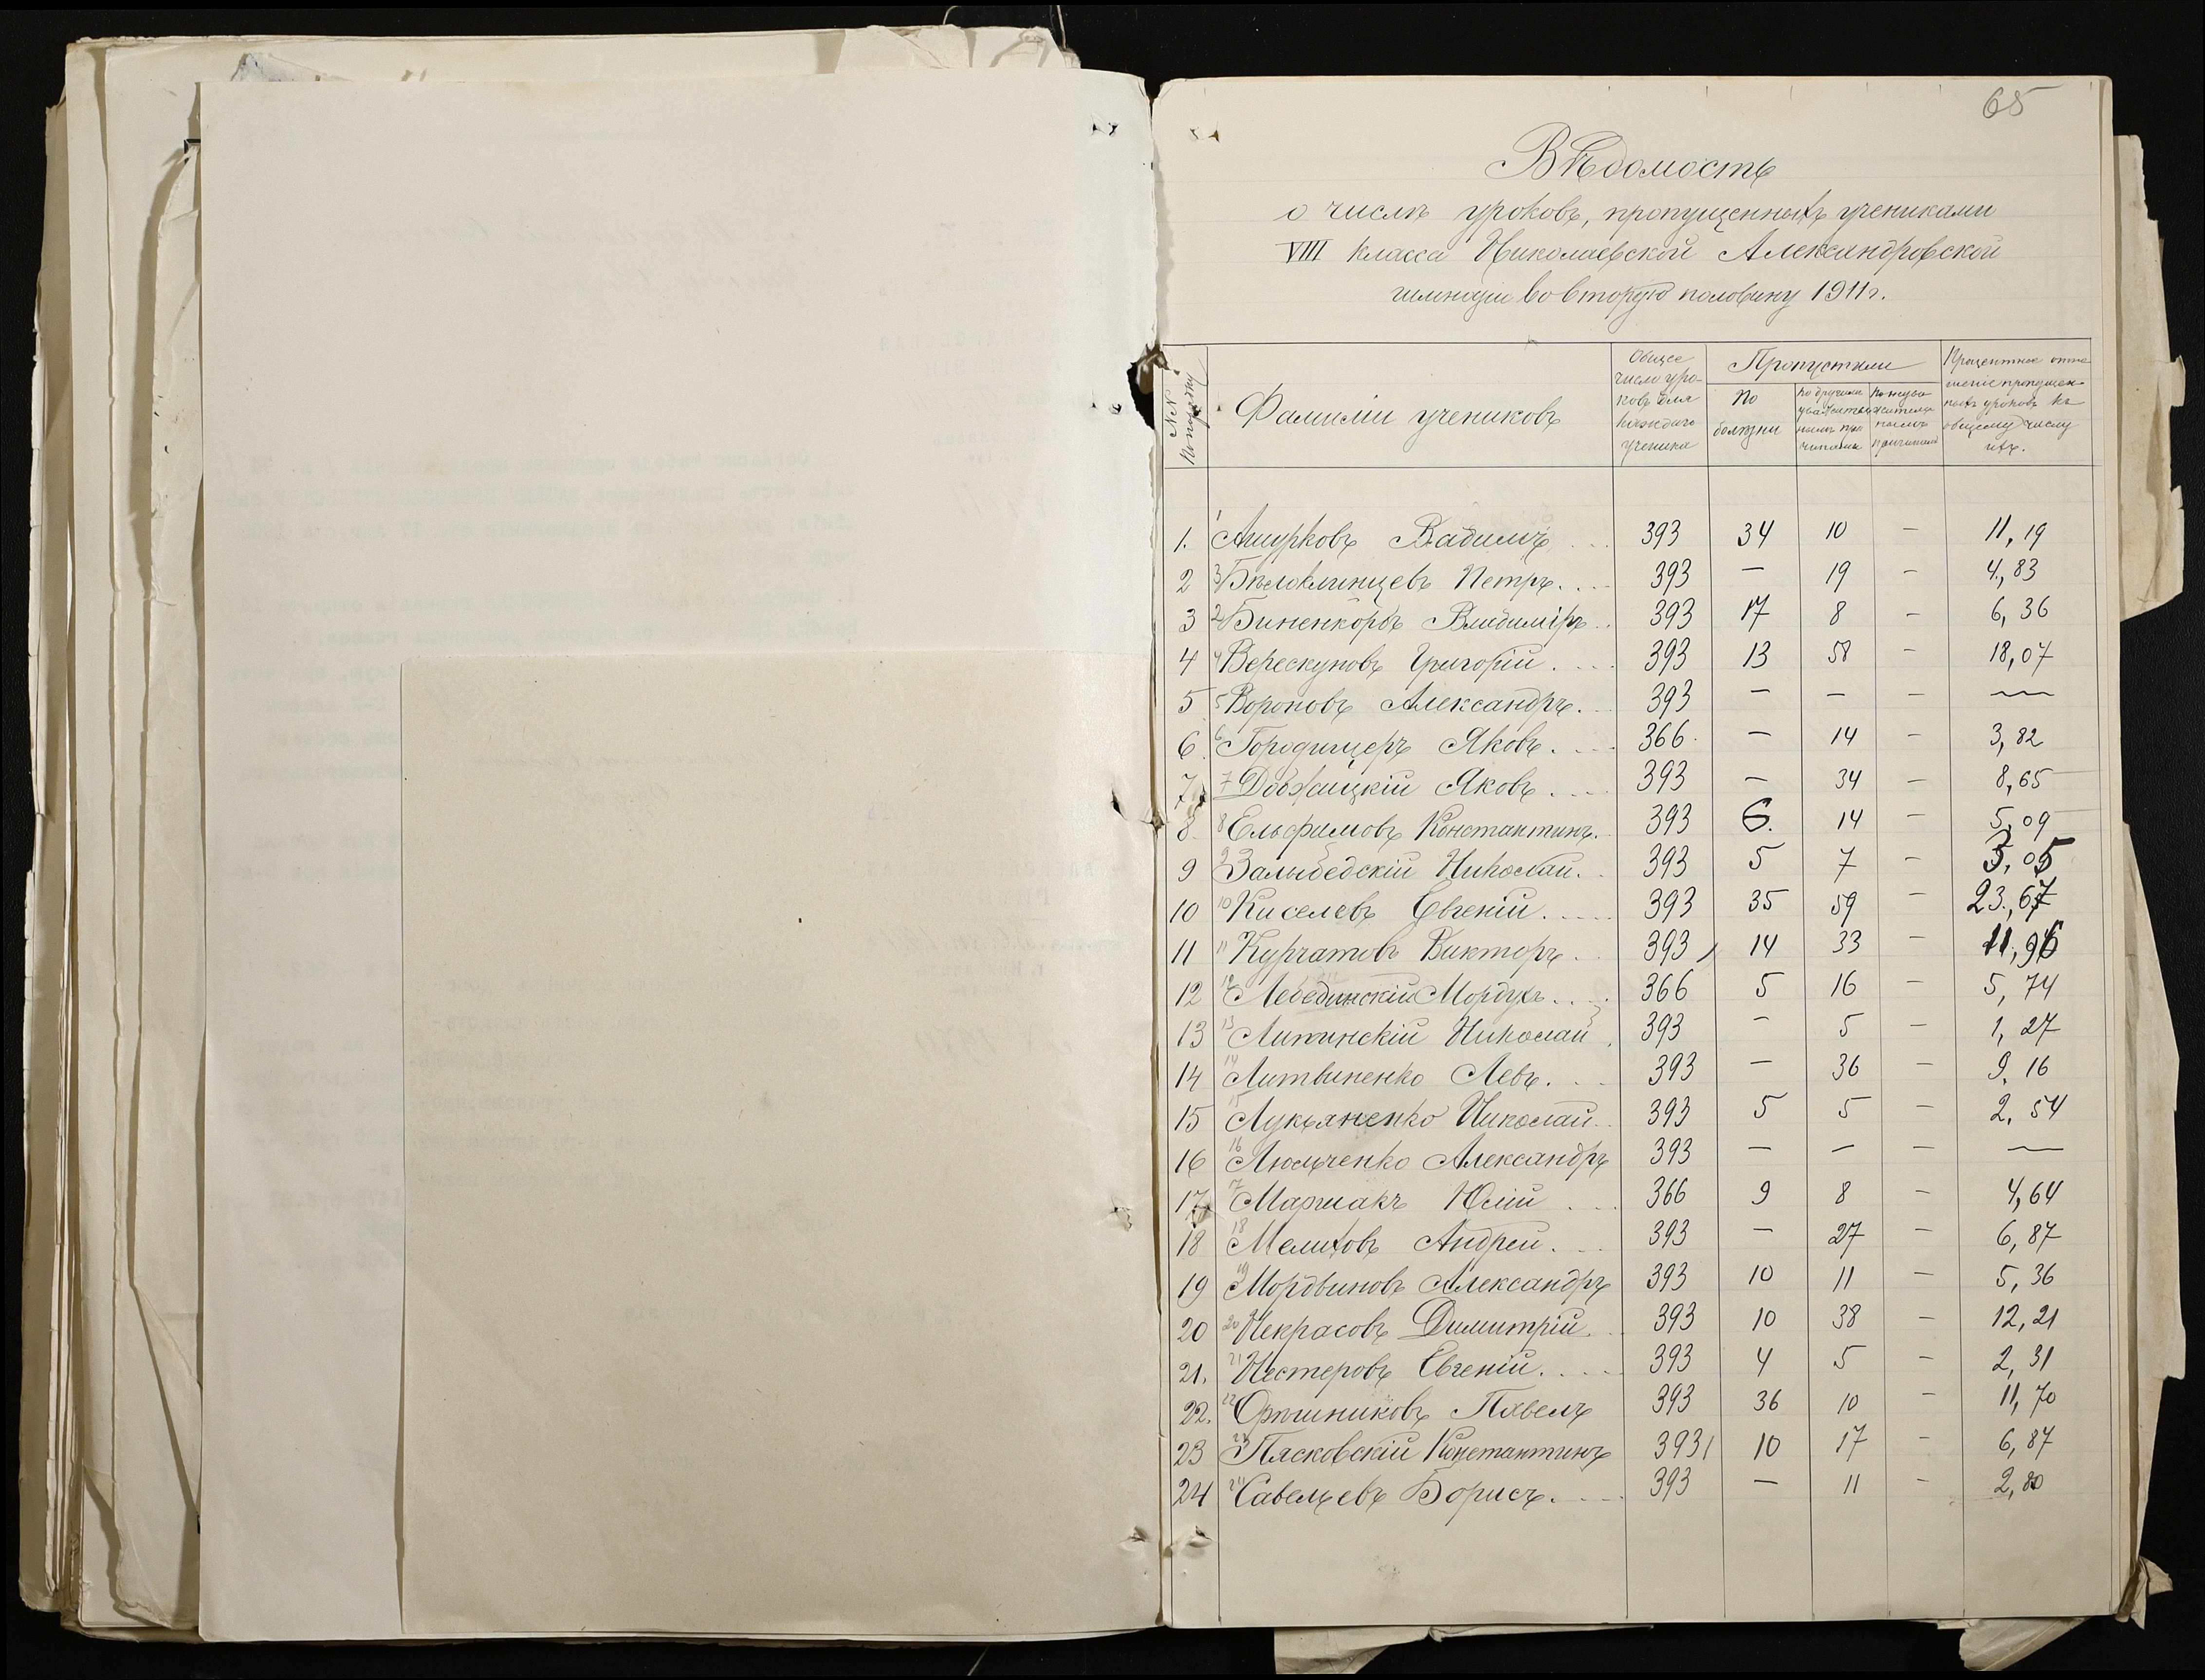 65
Вѣдомость
о числѣ уроковъ, пропущенныхъ учениками
VIII класса Николаевской Александровской
гимназіи во вторую половину 1911 г.
№№ по порядку
Фамиліи учениковъ
Общее число уроковъ для каждаго ученика
Пропустили
По болѣзни
По другимъ уважительнымъ причинамъ
По неуважительнымъ причинамъ
Процентное отношеніе пропущенныхъ уроковъ къ общему числу ихъ.
1. 1 Ашурковъ Вадимъ 393 34 10 — 11,19
2 3 Бѣлоклинцевъ Петръ. 393 — 19 — 4,83
3 2 Биненкорбъ Владиміръ 393 17 8 — 6,36
4 4 Верескуновъ Григорій. 393 13 58 — 18,07
5 5 Вороновъ Александръ. 393 — — — —
6 6 Городищеръ Яковъ. 366 — 14 — 3,82
7 7 Довжицкій Яковъ. 393 — 34 — 8,65
8 8 Ельфимовъ Константинъ. 393 6. 14 — 5,09
9 9 Залыбедскій Николай. 393 5 7 — 3,05
10 10 Киселевъ Евгеній. 393 35 59 — 23,67
11 11 Курчатовъ Викторъ. 393 14 33 — 11,96
12 12 Лебединскій Мордухъ. 366 5 16 — 5,74
13 13 Литинскій Николай 393 — 5 — 1,27
14 14 Литвиненко Левъ. 393 — 36 — 9,16
15 15 Лукьяненко Николай. 393 5 5 — 2,54
16 16 Люльченко Александръ 393 — — — —
17 17 Маршакъ Юлій 366 9 8 — 4,64
18 18 Мелиховъ Андрей. 393 — 27 — 6,87
19 19 Мордвиновъ Александръ 393 10 11 — 5,36
20 20 Некрасовъ Димитрій. 393 10 38 — 12,21
21. 21 Нестеровъ Евгеній. 393 4 5 — 2,31
22. 22 Орѣшниковъ Павелъ 393 36 10 — 11,70
23 23 Пясковскій Константинъ 393 10 17 — 6,87
24 24 Савельевъ Борисъ. 393 — 11 — 2,80